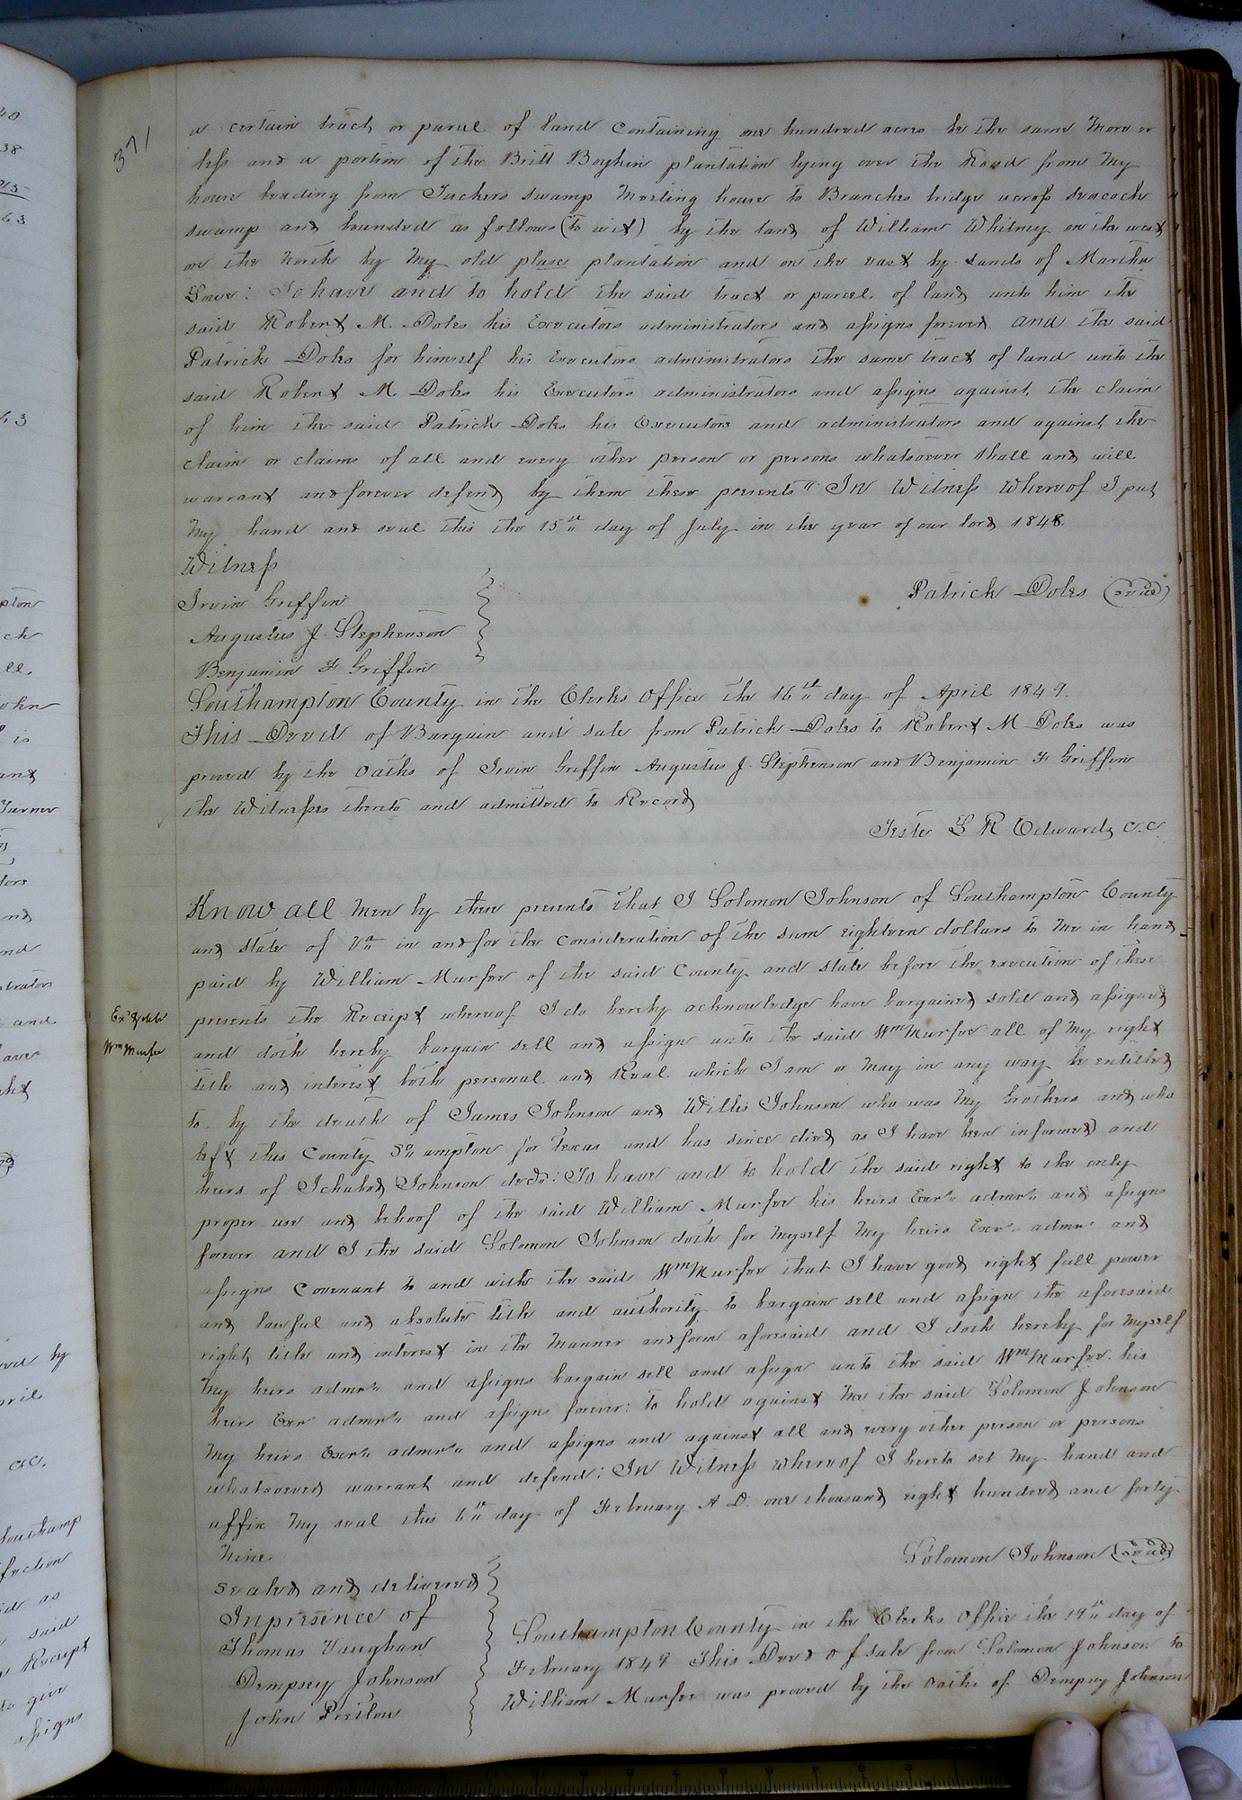 371
a certain tract or parcel of land Containing one hundred acres be the same More or
less and a portion of the Britt Boykin plantation lying over the Road from My
house leading from Tuckers swamp Meeting house to Branches bridge across seacock
swamp and bounded as follows (to wit) by the land of William Whitney on the west
on the North by My old place plantation and on the east by Lands of Martha
Lowe: To have and to hold the said tract or parcel of land unto him the
said Robert M. Doles his Executors administrators and assigns forever and the said
Patrick Doles for himself his Executors administrators the same tract of land unto the
said Robert M Doles his Executors administrators and assigns against the claim
of him the said Patrick Doles his Executors and administrators and against the
claim or claims of all and every other person or persons whatsoever shall and will
warrant and forever defend by them these presents" In Witness Whereof I put
My hand and seal this the 15th day of July in the year of our lord 1848
Witness
Irvin Griffin
Augustus J. Stephenson
Benjamin F Griffin
Patrick Doles (seal)
Southampton County in the Clerks Office the 16th day of April 1849.
This Deed of Bargain and sale from Patrick Doles to Robert M Doles was
proved by the oaths of Irvin Griffin Augustus J. Stephenson and Benjamin F Griffin
the Witnesses thereto and admitted to Record
Teste L R Edwards C.C.
Know all Men by these presents that I Solomon Johnson of Southampton County
and state of Va in and for the consideration of the sum eighteen dollars to Me in hand
paid by William Murfee of the said County and state before the execution of these
presents the Receipt whereof I do hereby acknowledge have bargained sold and assigned
Wm Murfee
and doth hereby bargain sell and assign unto the said Wm Murfee all of My right
title and interest both personal and Real which I am or May in any way be entitled
to by the death of James Johnson and Willis Johnson who was My brothers and who
left this County So ampton for Texas and has since died as I have been informed and
heirs of Johnson decd: To have and to hold the said right to the only
proper use and behoof of the said William Murfee his heirs Exers admrs and assigns
forever and I the said Solomon Johnson doth for Myself My heirs Exer admrs and
assigns Covenant to and with the said Wm Murfee that I have good right full power
and lawful and absolute title and authority to bargain sell and assign the aforesaid
right title and interest in the Manner and form aforesaid and I doth hereby for Myself
My heirs admrs and assigns bargain sell and assign unto the said Wm Murfee his
heirs Exer admrs and assigns forever: to hold against Me the said Solomon Johnson
My heirs Exers admrs and assigns and against all and every other person or persons
whatsoever warrant and defend: In Witness whereof I hereto set My hand and
affix My seal this 6th day of February A D. one thousand eight hundred and forty
Nine.
Solomon Johnson (seal)
Sealed and delivered
In presence of
Thomas Vaughan
Dempsey Johnson
John
Southampton County in the Clerks Office the 19th day of
February 1849 This Deed of sale from Solomon Johnson to
William Murfee was proved by the oaths of Dempsey Johnson